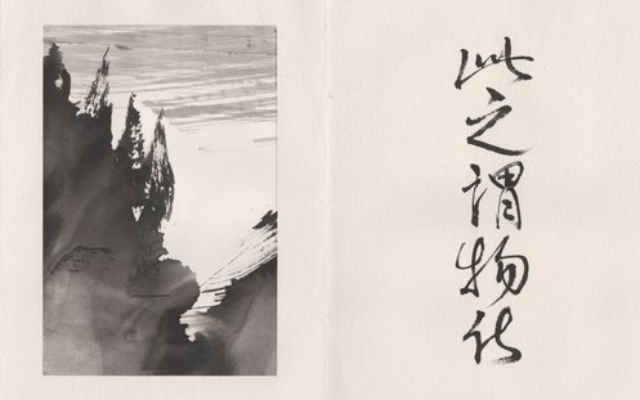 此之謂物化